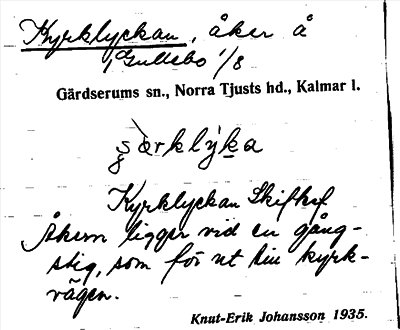 Kyrklyckan, åker å
Gullebo 1/8
Gärdserums sn., Norra Tjusts hd., Kalmar l.
Kyrklyckan Skifksf
Åkern ligger vid en gång-
stig, som för ut till kyrk-
vägen.
Knut-Erik Johansson 1935.